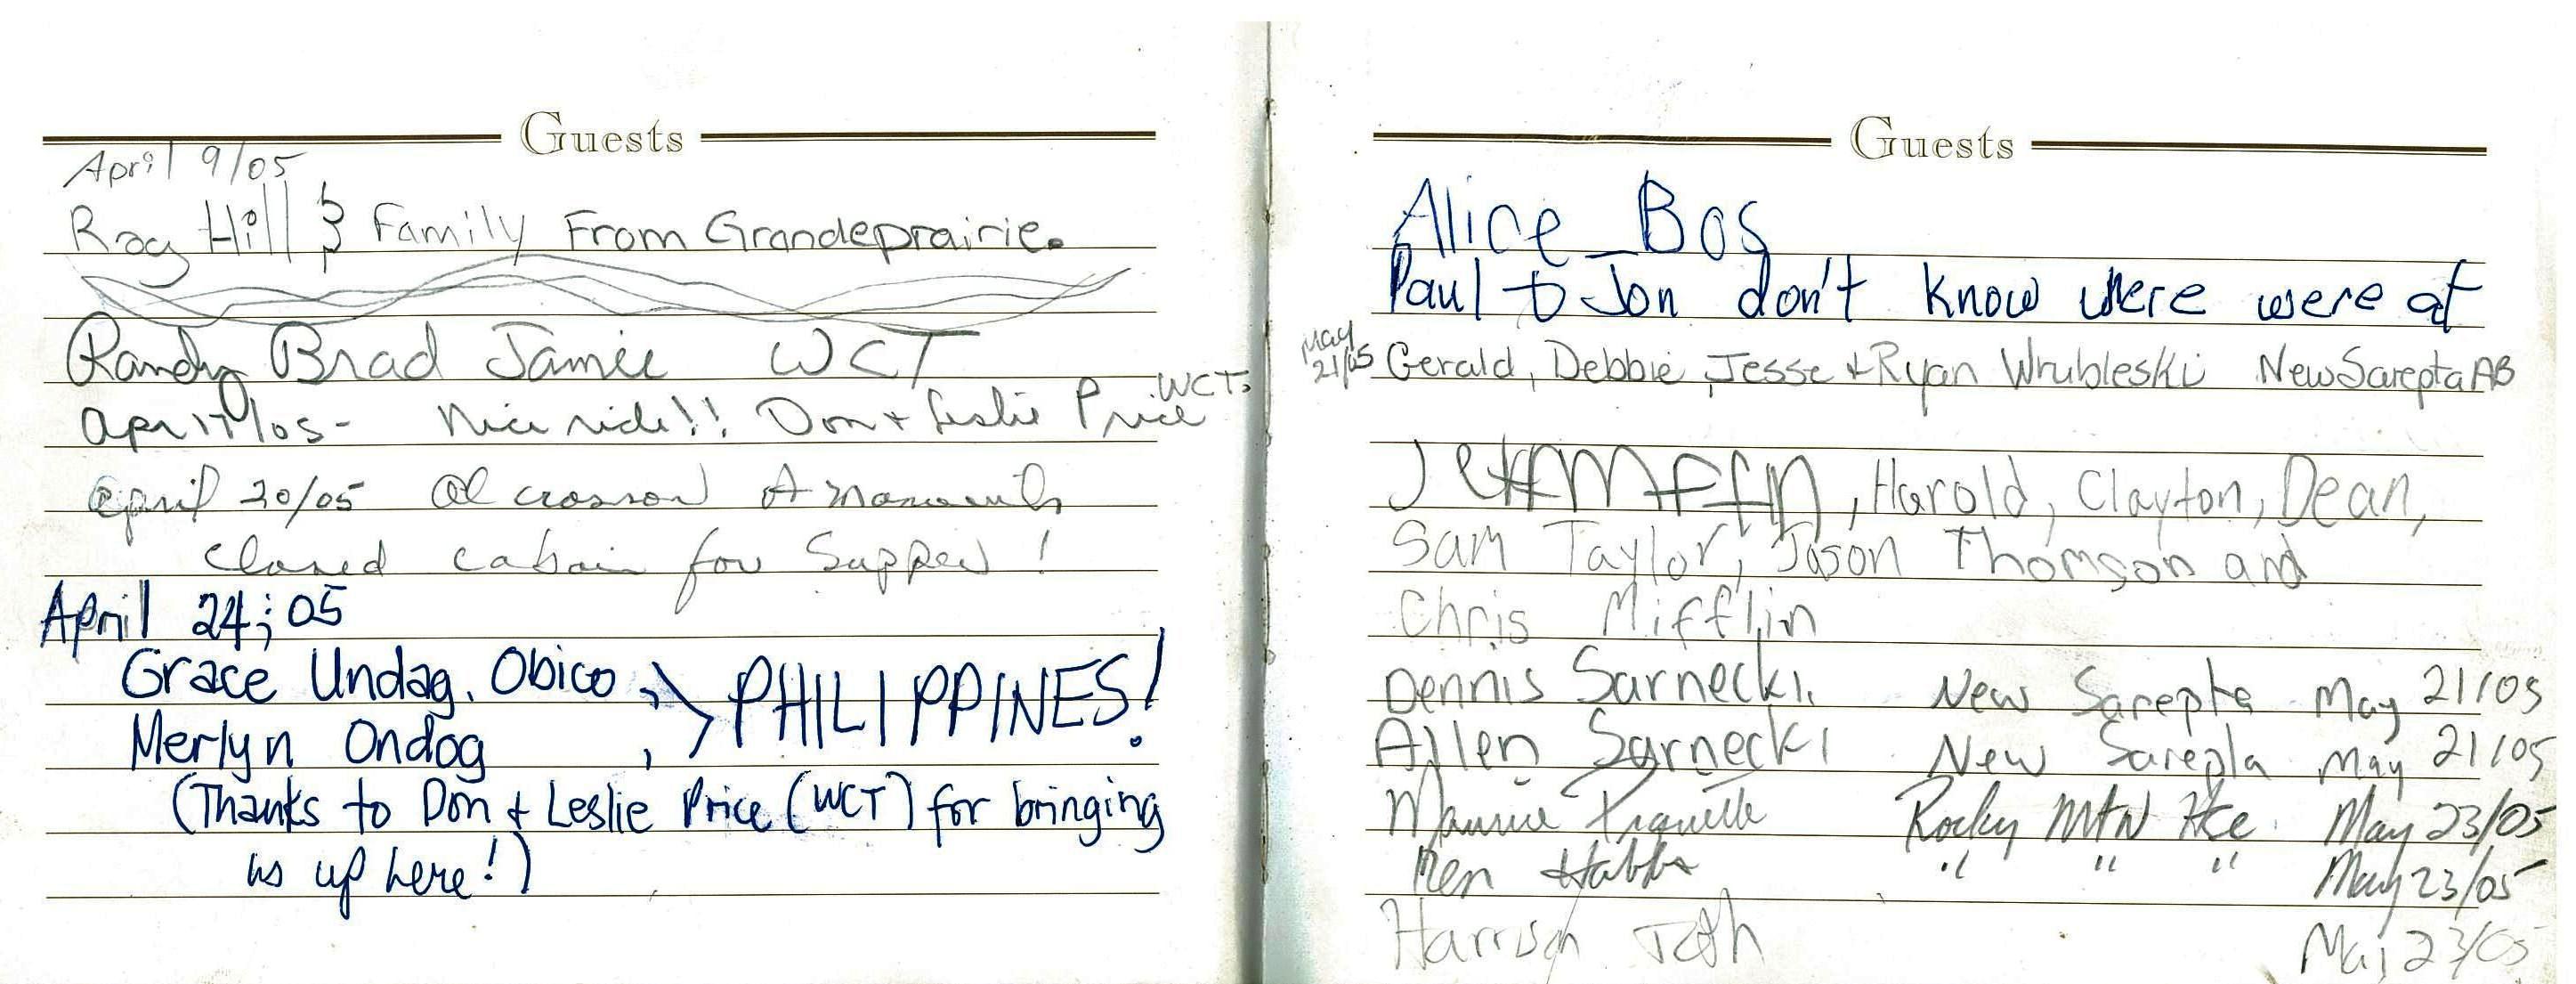 Guests
April 9/05
Ray Hill & Family From Grandeprairie.
Randy Brad Jamie WCT
Apr 17/05- Nice ride!! Don + Leslie Price WCT.
April 20/05 Al crosson
closed cabin for Supper!
April 24; 05
Grace Undag. Obico, > PHILIPPINES!
Merlyn Ondog,
(Thanks to Don + Leslie Price (WCT) for bringing
us up here!)
Guests
Alice Bos
Paul Jon don't know where were at
May 21/05 Gerald, Debbie, Jesse + Ryan Wrubleski New Sarepta AB
, Harold, Clayton, Dean,
Sam Taylor, Jason Thomson and
Chris Mifflin
Dennis Sarnecki. New Sarepta May 21/05
Allen Sarnecki New Sarepta May 21/05
Maurice Rocky Mtn Hse. May 23/05
Ken " " " May 23/05
Harrison Toth May 23/05